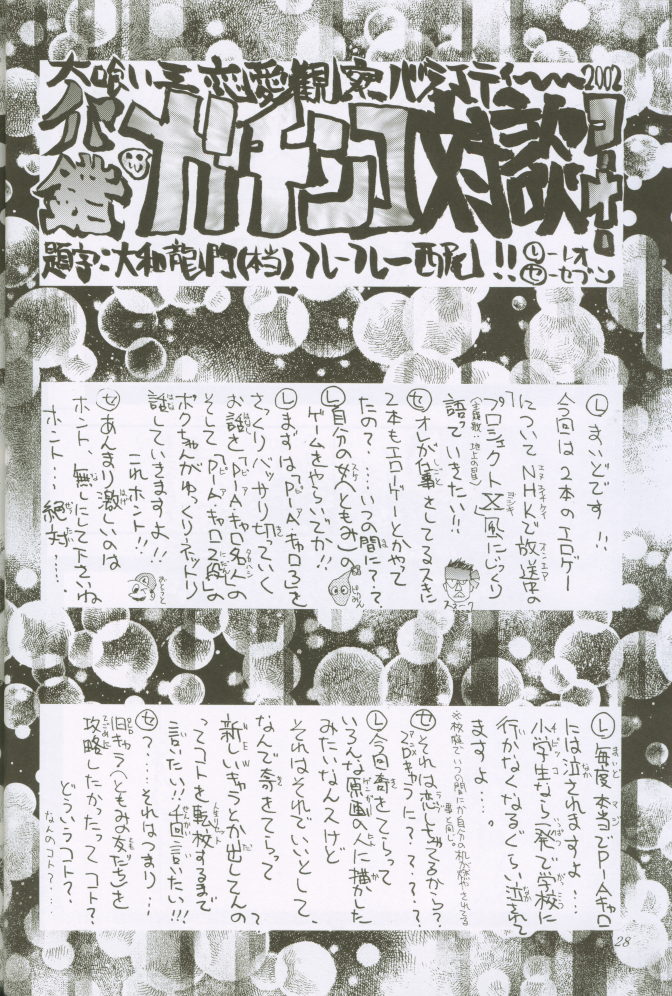 大喰い王恋愛観察バラエティー〜〜2002
犯業 ガチンコ対談コーナー
題字:大和龍門(本当)フレーフレー西尾!!
Ⓛーレオ
㋝ーセブン
Ⓛまいどです!!
今回は2本のエロゲー
についてNHKで放送中の
「プロジェクトX」風にじっくり
語っていきたい!!
㋝オレが仕事をしてるスキに
2本もエロゲーとかやって
たの?...いつの間に??
Ⓛ自分の女(ともみ)の
ゲームをやらいでか!!
Ⓛまずは、「Pia・キャロ3」を
さっくりバッサリ切っていく
お話を「Pia・キャロ名人」の
そして「Pia・キャロ2殿」の
ボクちゃんがゆっくりネットリ
話していきますよ!!
これホント!!
㋝あんまり激しいのは
ホント、無しにして下さいね
ホント...絶対....
スネーク
おとうと
Ⓛ毎度本当でPiAキャロ
には泣されますよ...
小学生なら一発で学校に
行かなくなるぐらい泣されて
ますよ...。
※放課でいつの間にか自分の机が燃やされてる
事と同じ。
㋝それは悲しすぎてるから?
プロきゃらに????
Ⓛ今回奇をてらって
いろんな原画の人に描かした
みたいなんスけど
それはそれでいいとして、
なんで奇をてらって
新しいきゃらとか出してんの?
ってコトを転校するまで
言いたい!!千回言いたい!!!
㋝?...それはつまり...
旧きゃら(ともみの友だち)を
攻略したかったってコト?
どういうコト?
なんのコト?...
28